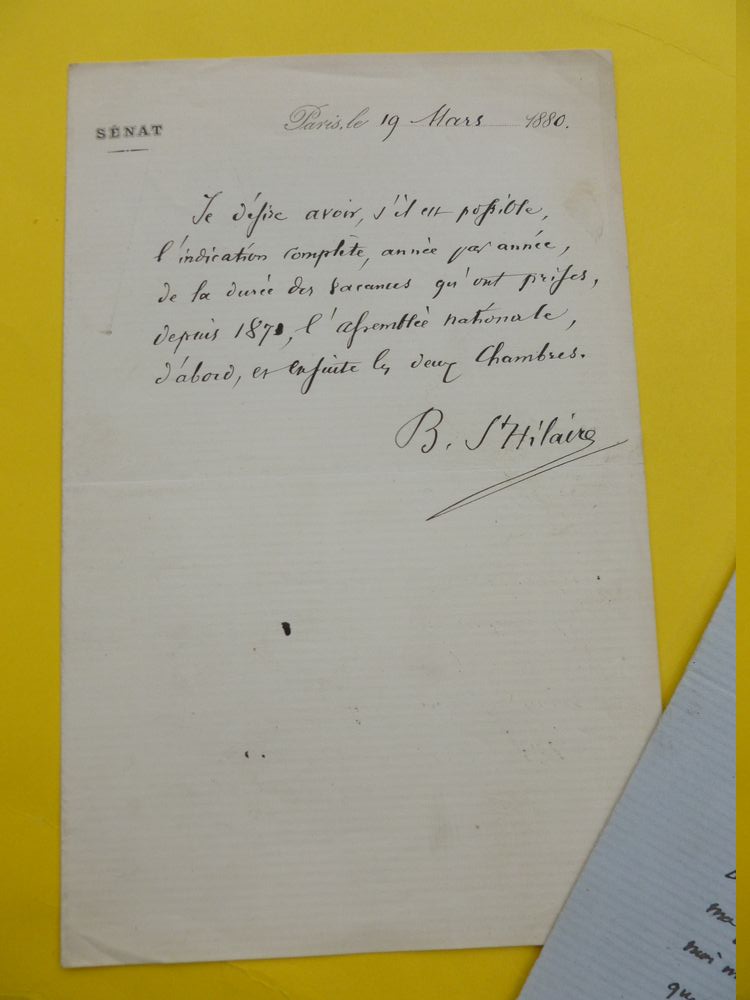 SÉNAT
Paris, le 19 Mars 1880.
Je désire avoir, s'il est possible,
l'indication complète, année par année,
de la durée des vacances qu'ont prises,
depuis 1871, l'Assemblée nationale,
d'abord, et ensuite les deux Chambres.
B. St Hilaire
ma
moi m
que